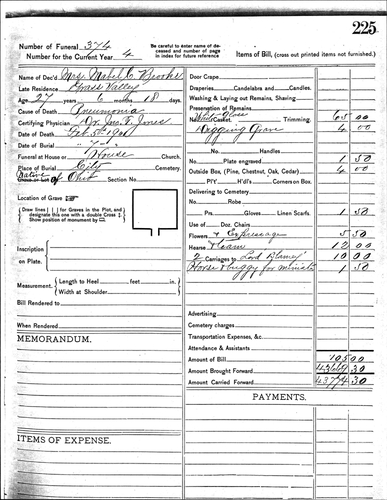 225
Number of Funeral 374
Number for the Current Year 4
Be careful to enter name of deceased and number of page in index for future reference
Items of Bill, (cross out printed items not furnished.)
Name of Dec'd Mrs. Mabel C. Brooks
Late Residence Grass Valley
Age 27 years 6 months 18 days.
Cause of Death Pneumonia
Certifying Physician Dr. Jno. T. Jones
Date of Death Feb. 5th 1901
Date of Burial " 7 "
Funeral at House Church.
Place of Burial City Cemetery.
Native of Ohio Section No.
Location of Grave
Draw lines | | for Graves in the Plot, and designate this one with a double Cross
Show position of monument by
Inscription on Plate.
Measurement. Length to Heel feet in.
Width at Shoulder
Bill Rendered to
When Rendered
MEMORANDUM.
ITEMS OF EXPENSE.
Door Crape
Draperies Candelabra and Candles.
Washing & Laying out Remains, Shaving,
Preservation of Remains
No. Casket, Trimming. 65 00
Digging Grave 4 00
No. Handles
Plate engraved 1 50
Outside Box, (Pine, Chestnut, Oak, Cedar) 4 00
P'l'y H'd'ls Corners on Box.
Delivering to Cemetery
No. Robe
Prs. Gloves Linen Scarfs. 1 50
Use of Doz. Chairs
Flowers & Expressage 5 50
Hearse Team 12 00
2 Carriages to 10 00
Horse & buggy for minister 1 50
Advertising
Cemetery charges
Transportation Expenses, &c.
Attendance & Assistants
Amount of Bill 105 00
Amount Brought Forward 43669 30
Amount Carried Forward 43774 30
PAYMENTS.